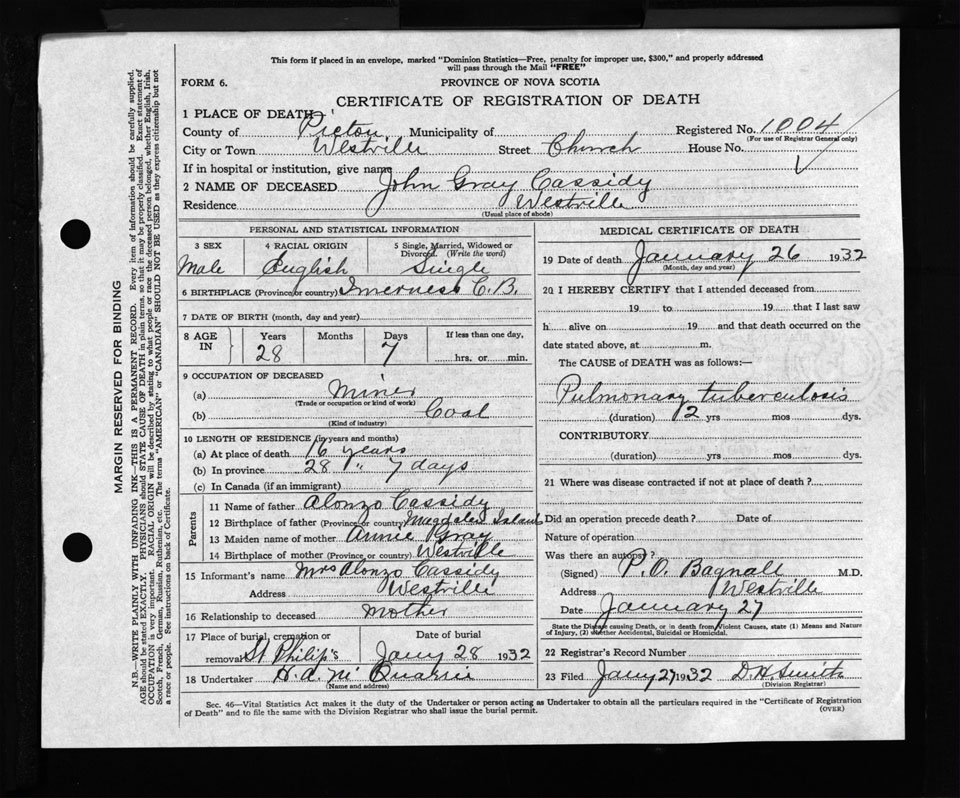 This form if placed in an envelope, marked "Dominion Statistics—Free, penalty for improper use, $300," and properly addressed
will pass through the Mail "FREE"
FORM 6.
PROVINCE OF NOVA SCOTIA
CERTIFICATE OF REGISTRATION OF DEATH
1 PLACE OF DEATH
County of Picton Municipality of Registered No. 1004
(For use of Registrar General only)
City or Town Westville Street Church House No.
If in hospital or institution, give name
2 NAME OF DECEASED John Gray Cassidy
Residence Westville
(Usual place of abode)
PERSONAL AND STATISTICAL INFORMATION
3 SEX 4 RACIAL ORIGIN 5 Single, Married, Widowed or
Divorced (Write the word)
Male English Single
6 BIRTHPLACE (Province or country) Inverness C.B.
7 DATE OF BIRTH (month, day and year)
8 AGE IN Years Months Days If less than one day,
28 7 hrs. or min.
9 OCCUPATION OF DECEASED
(a) Miner
(Trade or occupation or kind of work)
(b) Coal
(Kind of industry)
10 LENGTH OF RESIDENCE (in years and months)
(a) At place of death 16 years
(b) In province 28 " 7 days
(c) In Canada (if an immigrant)
Parents
11 Name of father Alonzo Cassidy
12 Birthplace of father (Province or country) Magdalen Islands
13 Maiden name of mother Annie Gray
14 Birthplace of mother (Province or country) Westville
15 Informant's name Mrs Alonzo Cassidy
Address Westville
16 Relationship to deceased mother
17 Place of burial, cremation or Date of burial
removal St Philip's Jany 28 1932
18 Undertaker H. A.
(Name and address)
MEDICAL CERTIFICATE OF DEATH
19 Date of death January 26 1932
(Month, day and year)
20 I HEREBY CERTIFY that I attended deceased from
19 to 19 that I last saw
h alive on 19 and that death occurred on the
date stated above, at m.
The CAUSE of DEATH was as follows:—
Pulmonary tuberculosis
(duration) 2 yrs mos dys.
CONTRIBUTORY
(duration) yrs mos dys.
21 Where was disease contracted if not at place of death?
Did an operation precede death? Date of
Nature of operation
Was there an autopsy?
(Signed) P. O. Bagnall M.D.
Address Westville
Date January 27
State the Disease causing Death, or in death from Violent Causes, state (1) Means and Nature
of Injury, (2) whether Accidental, Suicidal or Homicidal.
22 Registrar's Record Number
23 Filed Jany 27 1932 D. H. Smith
(Division Registrar)
Sec. 46—Vital Statistics Act makes it the duty of the Undertaker or person acting as Undertaker to obtain all the particulars required in the "Certificate of Registration
of Death" and to file the same with the Division Registrar who shall issue the burial permit.
(OVER)
MARGIN RESERVED FOR BINDING
N.B.—WRITE PLAINLY WITH UNFADING INK—THIS IS A PERMANENT RECORD. Every item of information should be carefully supplied.
AGE should be stated EXACTLY. PHYSICIANS should STATE CAUSE OF DEATH in plain terms, so that it may be properly classified. Exact statement of
OCCUPATION is very important. RACIAL ORIGIN will be described by stating to what people or race the deceased person belonged, whether English, Irish,
Scotch, French, German, Russian, Ruthenian, etc. The terms "AMERICAN" or "CANADIAN" SHOULD NOT BE USED as they express citizenship but not
a race or people. See instructions on back of Certificate.